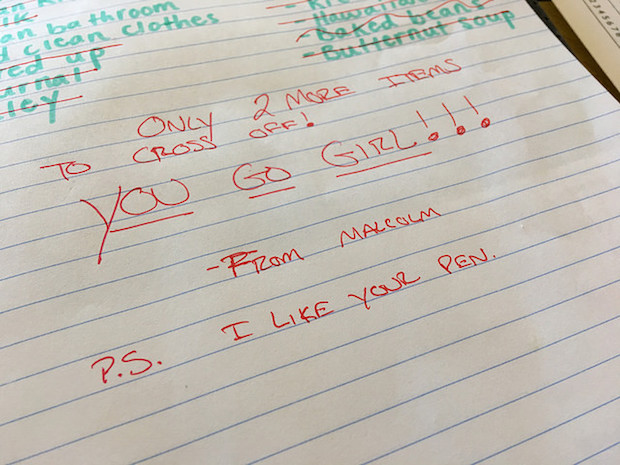 an bathroom
d clean clothes
ed up
urnal
ley
- Baked beans
- Butternut soup
ONLY 2 MORE ITEMS
TO CROSS OFF!
YOU GO GIRL!!!
- FROM MALCOLM
P.S. I LIKE YOUR PEN.